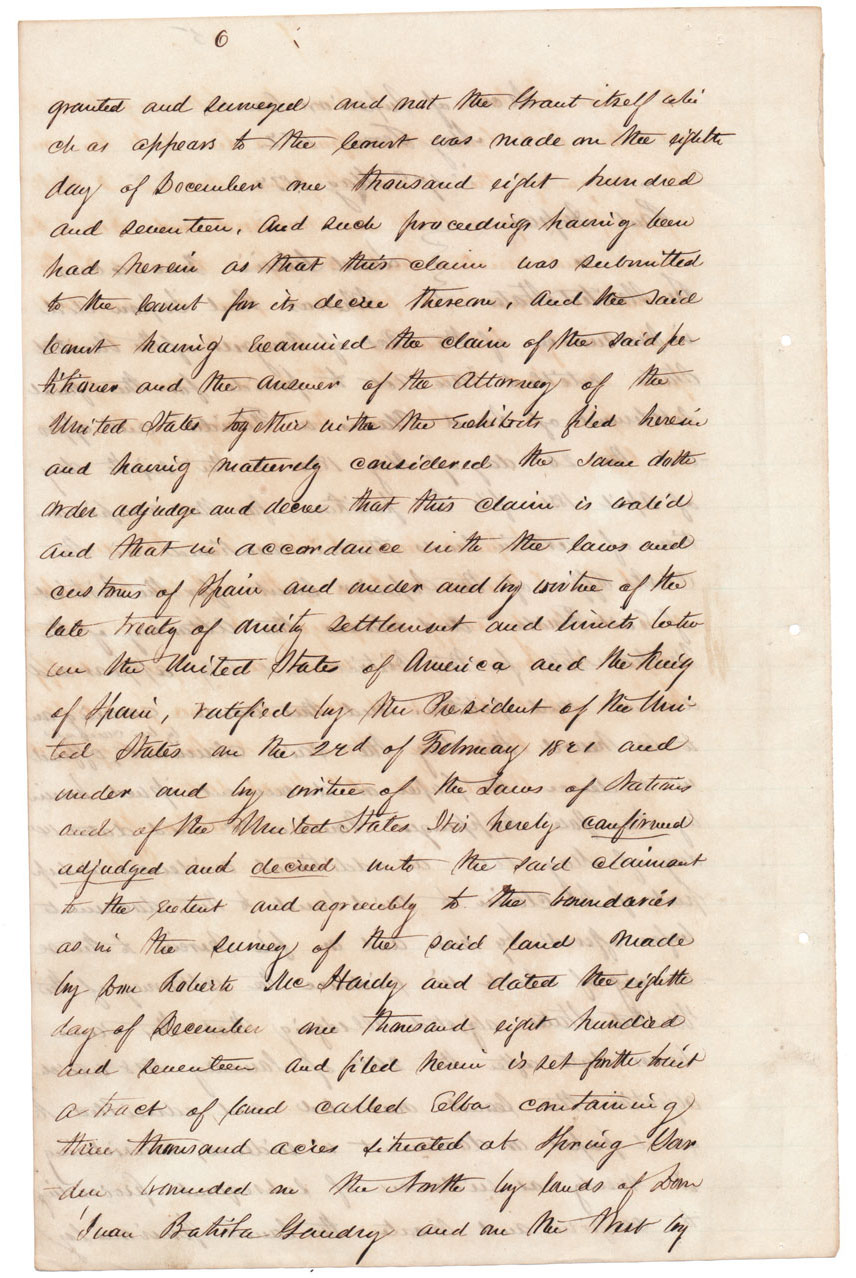 6
granted and surveyed and not the Grant itself whi
ch as appears to the Court was made on the eighth
day of December one thousand eight hundred
and seventeen. And such proceedings having been
had herein as that this claim was submitted
to the Court for its decree thereon, And the said
Court having Examined the claim of the said pe-
titioner and the answer of the Attorney of the
United States together with the Exhibits filed herein
and having maturely considered the same doth
order adjudge and decree that this claim is valid
and that in accordance with the laws and
customs of Spain and under and by virtue of the
late treaty of amity settlement and limits betw
een the United States of America and the King
of Spain, ratified by the President of the Uni-
ted States on the 22d of February 1821 and
under and by virtue of the Laws of Nations
and of the United States It is hereby confirmed
adjudged and decreed unto the said claimant
to the Extent and agreeably to the boundaries
as in the survey of the said land made
by Don Roberto Mc Hardy and dated the eighth
day of December one thousand eight hundred
and seventeen and filed herein is set forth towit
a tract of land called Elba containing
three thousand acres situated at Spring Gar
den bounded on the North by lands of Don
Juan Batista Gaudry and on the West by